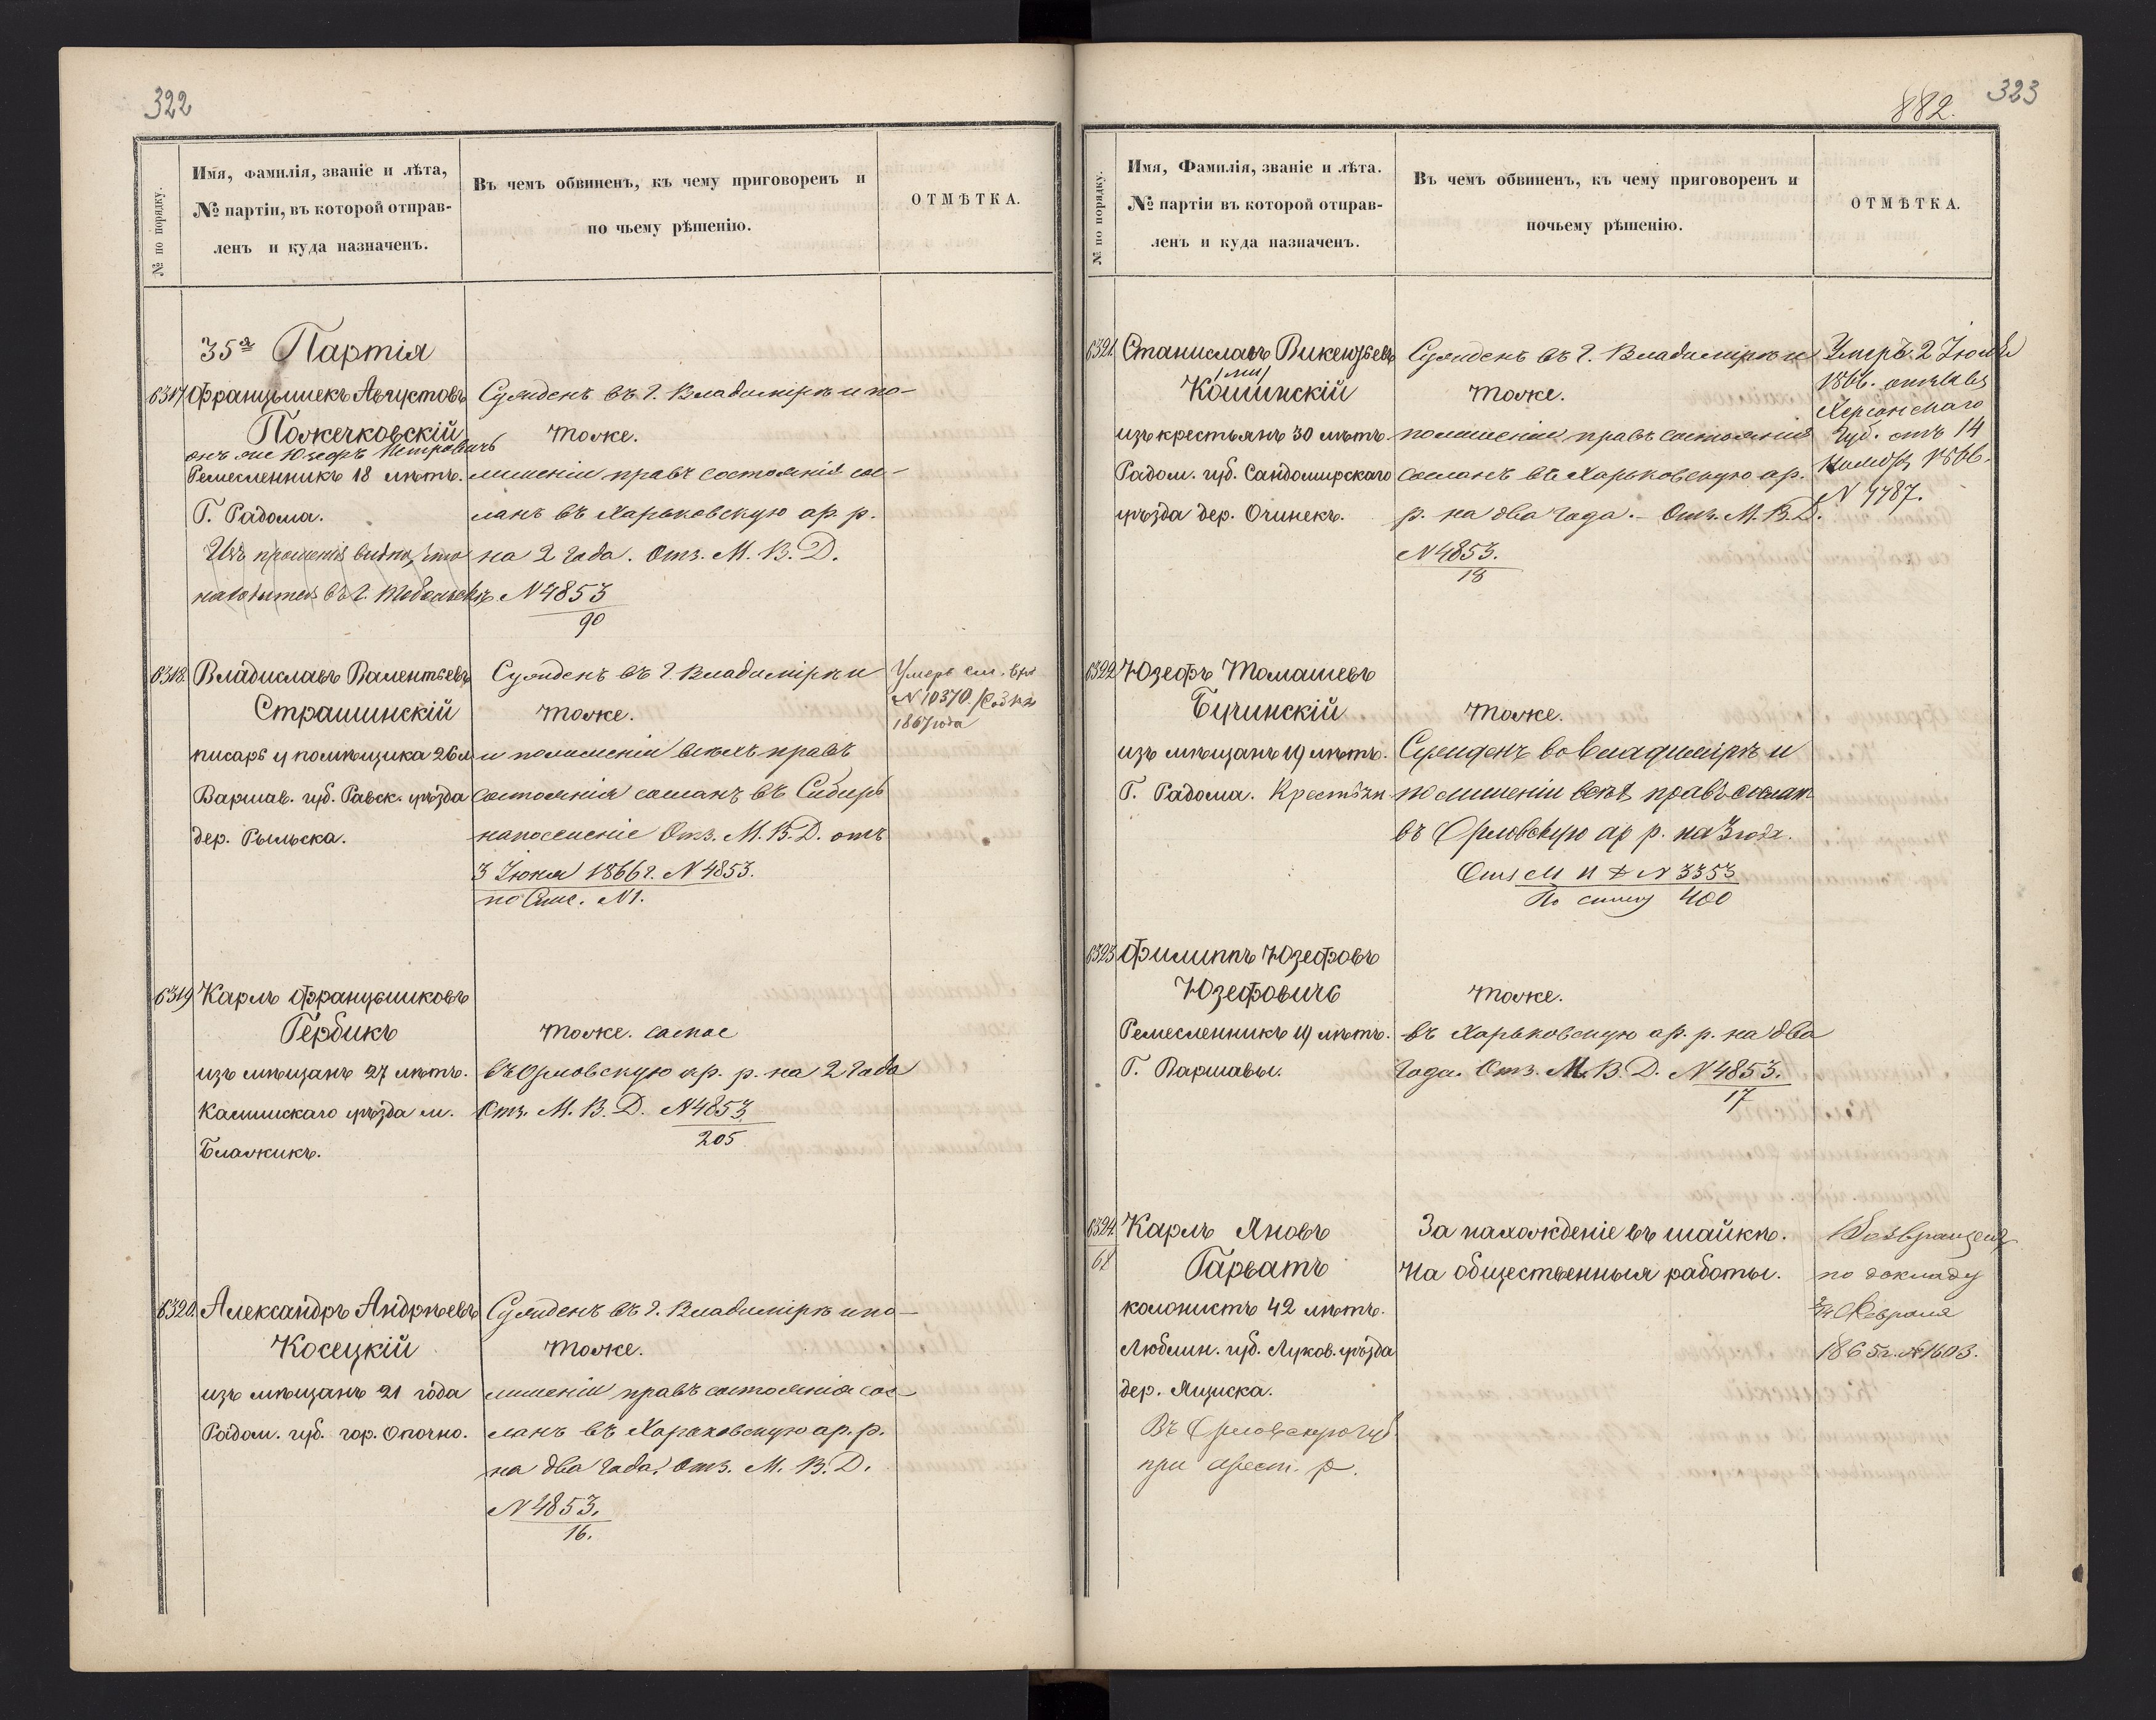 322
№ по порядку.
Имя, фамилія, званіе и лѣта,
№ партіи, въ которой отправ-
ленъ и куда назначенъ.
Въ чемъ обвиненъ, къ чему приговоренъ и
по чьему рѣшенію.
ОТМѢТКА.
35я Партія
6317 Францышекъ Августовъ
Пожечковскій
онъ же Юзефъ Петровичъ
Ремесленникъ 18 лѣтъ.
Г. Радома.
Изъ прошенія видно, что
находится въ г. Тобольскѣ
Сужденъ въ г. Владимірѣ и по-
тоже.
лишеніи правъ состоянія сос-
ланъ въ Харьковскую ар. р.
на 2 года. Отз. М. В. Д.
N 4853
90
6318. Владиславъ Валентьевъ
Страшинскій
писарь у помѣщика 26 л
Варшав. губ. Равск. уѣзда
дер. Рыльска.
Сужденъ въ г. Владимірѣ и
тоже.
и полишеніи всѣхъ правъ
состоянія сосланъ въ Сибирь
напоселеніе Отз. М. В. Д. отъ
3 Іюня 1866 г. N 4853.
по Спис. N 1.
Умеръ см.
N 10370
1867 года
6319 Карлъ Францышковъ
Гербикъ
изъ мѣщанъ 27 лѣтъ.
Калишскаго уѣзда м.
Блажкикъ.
тоже. сослас
въ Орловскую ар. р. на 2 года
Отз. М. В. Д. N 4853
205
6320. Александръ Андрѣевъ
Косецкій
изъ мѣщанъ 21 года
Радом. губ. гор. Опочно.
Сужденъ въ г. Владимірѣ и по-
тоже.
лишеніи правъ состоянія сос-
ланъ въ Харьковскую ар. р.
на два года. Отз. М. В. Д.
N 4853.
16.
323
882.
№ по порядку.
Имя, Фамилія, званіе и лѣта.
№ партіи въ которой отправ-
ленъ и куда назначенъ.
Въ чемъ обвиненъ, къ чему приговоренъ и
почьему рѣшенію.
ОТМѢТКА.
6321. Станиславъ Викентьевъ
/ли/
Кошинскій
изъ крестьянъ 30 лѣтъ.
Радом. губ. Сандомирскаго
уѣзда дер. Очинекъ.
Сужденъ въ г. Владимірѣ и
тоже.
полишеніи правъ состоянія
сосланъ въ Харьковскую ар.
р. на два года. - Отз. М. В. Д.
N 4853.
18
Умеръ. 2 Іюля
1866.
Херсонскаго
Губ. отъ 14
1866.
N 7787.
6322 Юзефъ Томашевъ
Бучинскій
изъ мѣщанъ 19 лѣтъ.
Г. Радома. Крестьян.
тоже.
Сужденъ во Владимірѣ и
по лишеніи всѣхъ правъ сослан
въ Орловскую ар р. на 3 года.
Отз М В Д N 3353
По списку 400
6323 Филиппъ Юзефовъ
Юзефовичъ
Ремесленникъ 19 лѣтъ.
Г. Варшавы.
тоже.
въ Харьковскую ар. р. на два
года. Отз. М. В. Д. N 4853.
17
6324 Карлъ Яновъ
61
Гарватъ
колонистъ 42 лѣтъ.
Люблин. губ. Луков. уѣзда
дер. Ящиска.
Въ Орловскую губ.
при арест. р.
За нахожденіе въ шайкѣ.
На общественныя работы.
Возвращенъ
по докладу
Февраля
1865 г. № 1603.